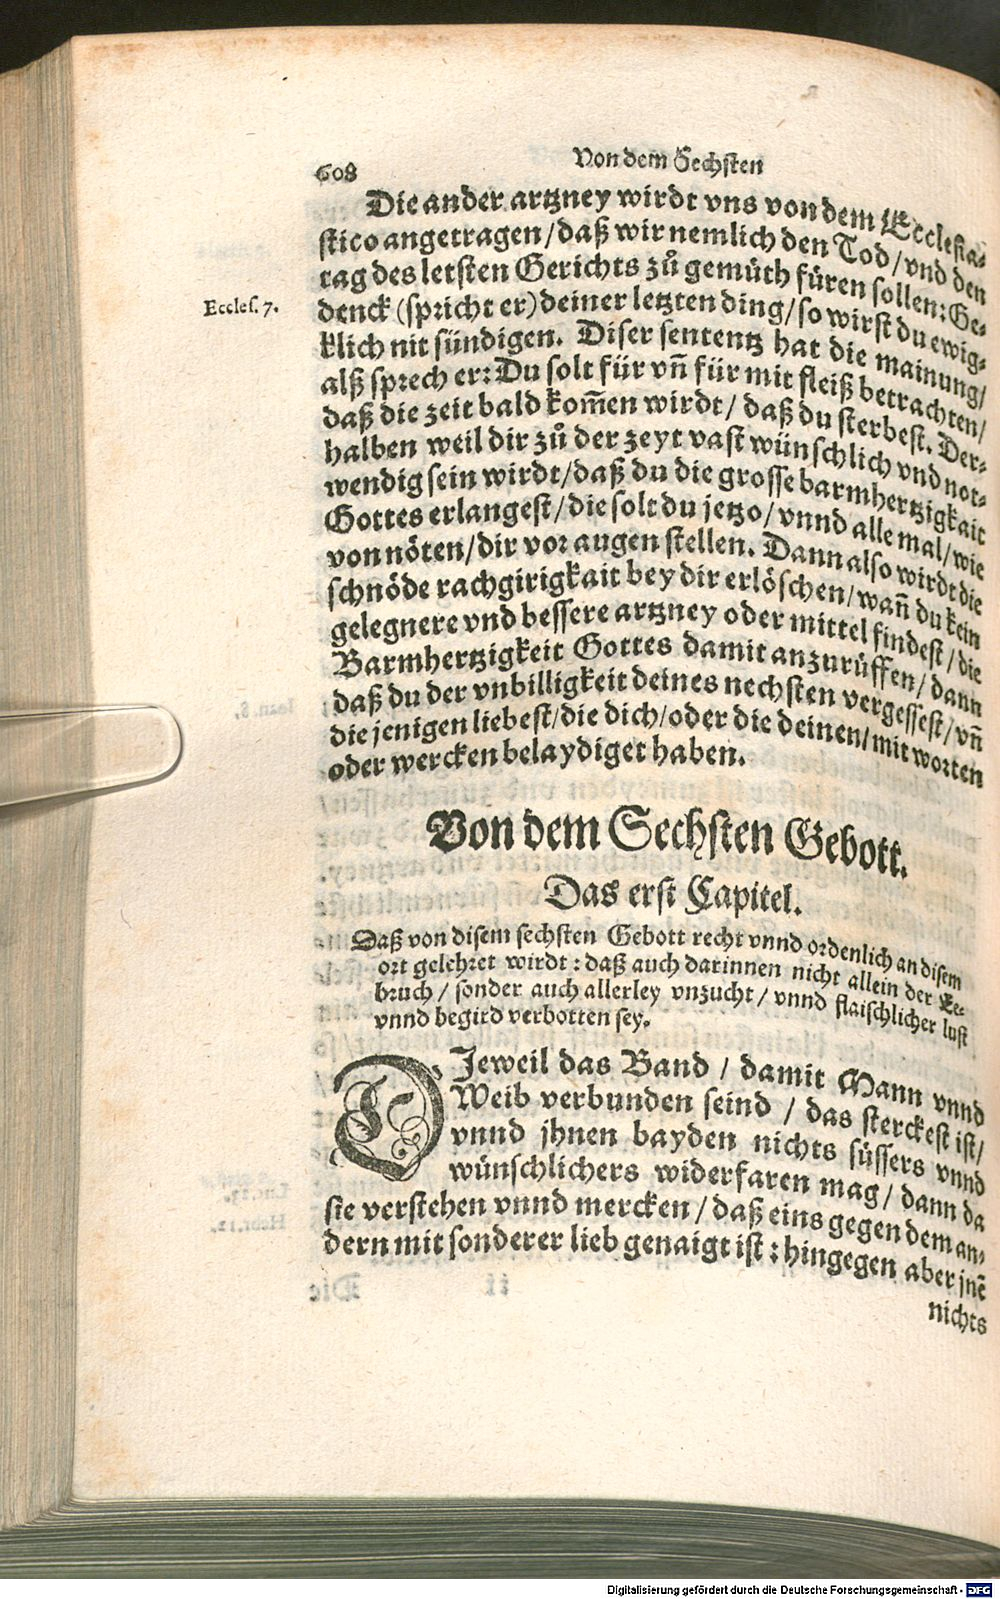 608 Von dem Sechsten
Die ander artzney wirdt vns von dem Ecclesia-
stico angetragen/ daß wir nemlich den Tod/ vnd den
tag des letsten Gerichts zů gemüth füren sollen: Ge-
Eccles. 7.
denck (spricht er) deiner letzten ding/ so wirst du ewig-
klich nit sündigen. Diser sententz hat die mainung/
alß sprech er: Du solt für vñ für mit fleiß betrachten/
daß die zeit bald kom̃en wirdt/ daß du sterbest. Der-
halben weil dir zů der zeyt vast wünschlich vnd not-
wendig sein wirdt/ daß du die grosse barmhertzigkait
Gottes erlangest/ die solt du jetzo/ vnnd alle mal/ wie
von nöten/ dir vor augen stellen. Dann also wirdt die
schnöde rachgirigkait bey dir erlöschen/ wañ du kein
gelegnere vnd bessere artzney oder mittel findest/ die
Barmhertzigkeit Gottes damit anzurüffen/ dann
daß du der vnbilligkeit deines nechsten vergessest/ vñ
die jenigen liebest/ die dich/ oder die deinen/ mit worten
oder wercken belaydiget haben.
Von dem Sechsten Gebott.
Das erst Capitel.
Daß von disem sechsten Gebott recht vnnd ordenlich an disem
ort gelehret wirdt: daß auch darinnen nicht allein der Ee-
bruch/ sonder auch allerley vnzucht/ vnnd flaischlicher lust
vnnd begird verbotten sey.
DJeweil das Band/ damit Mann vnnd
Weib verbunden seind/ das sterckest ist/
vnnd jhnen bayden nichts süssers vnnd
wünschlichers widerfaren mag/ dann da
sie verstehen vnnd mercken/ daß eins gegen dem an-
dern mit sonderer lieb genaigt ist: hingegen aber jnẽ
nichts
Digitalisierung gefördert durch die Deutsche Forschungsgemeinschaft - DFG